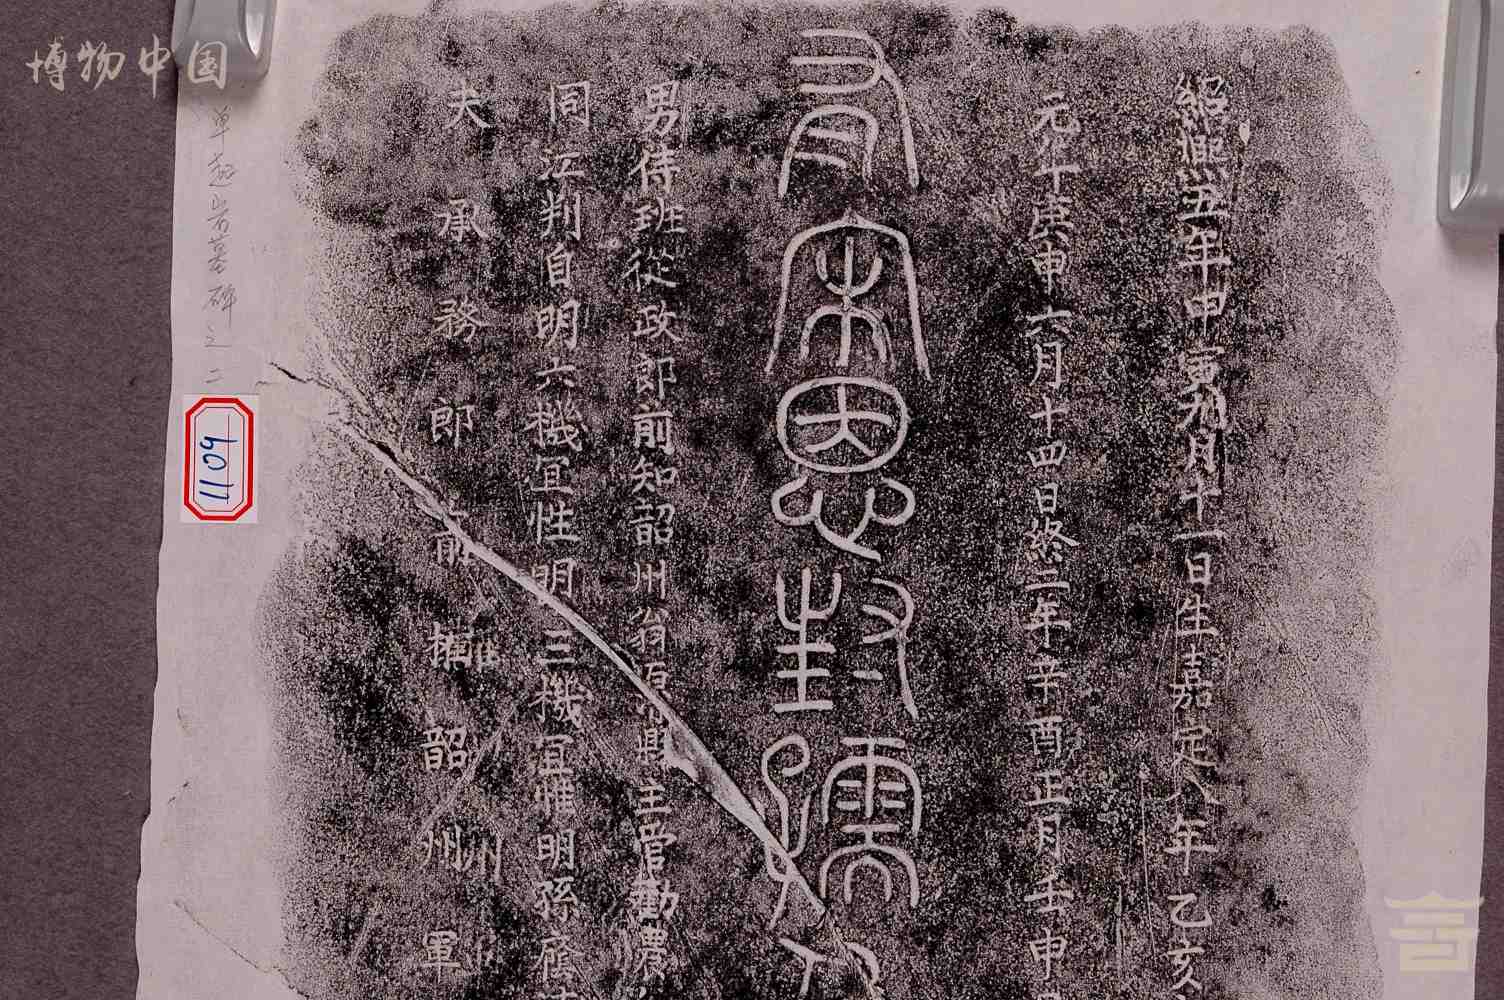 紹熙五年甲寅九月十一日生嘉定八年乙亥
元年庚申六月十四日終二年辛酉正月壬申
有宋恩封孺
男侍班從政郎前知韶州翁源縣主管勸農
同江判自明六機宜性明三機宜惟明孫
夫承務郎前權韶州軍
博物中国
1109